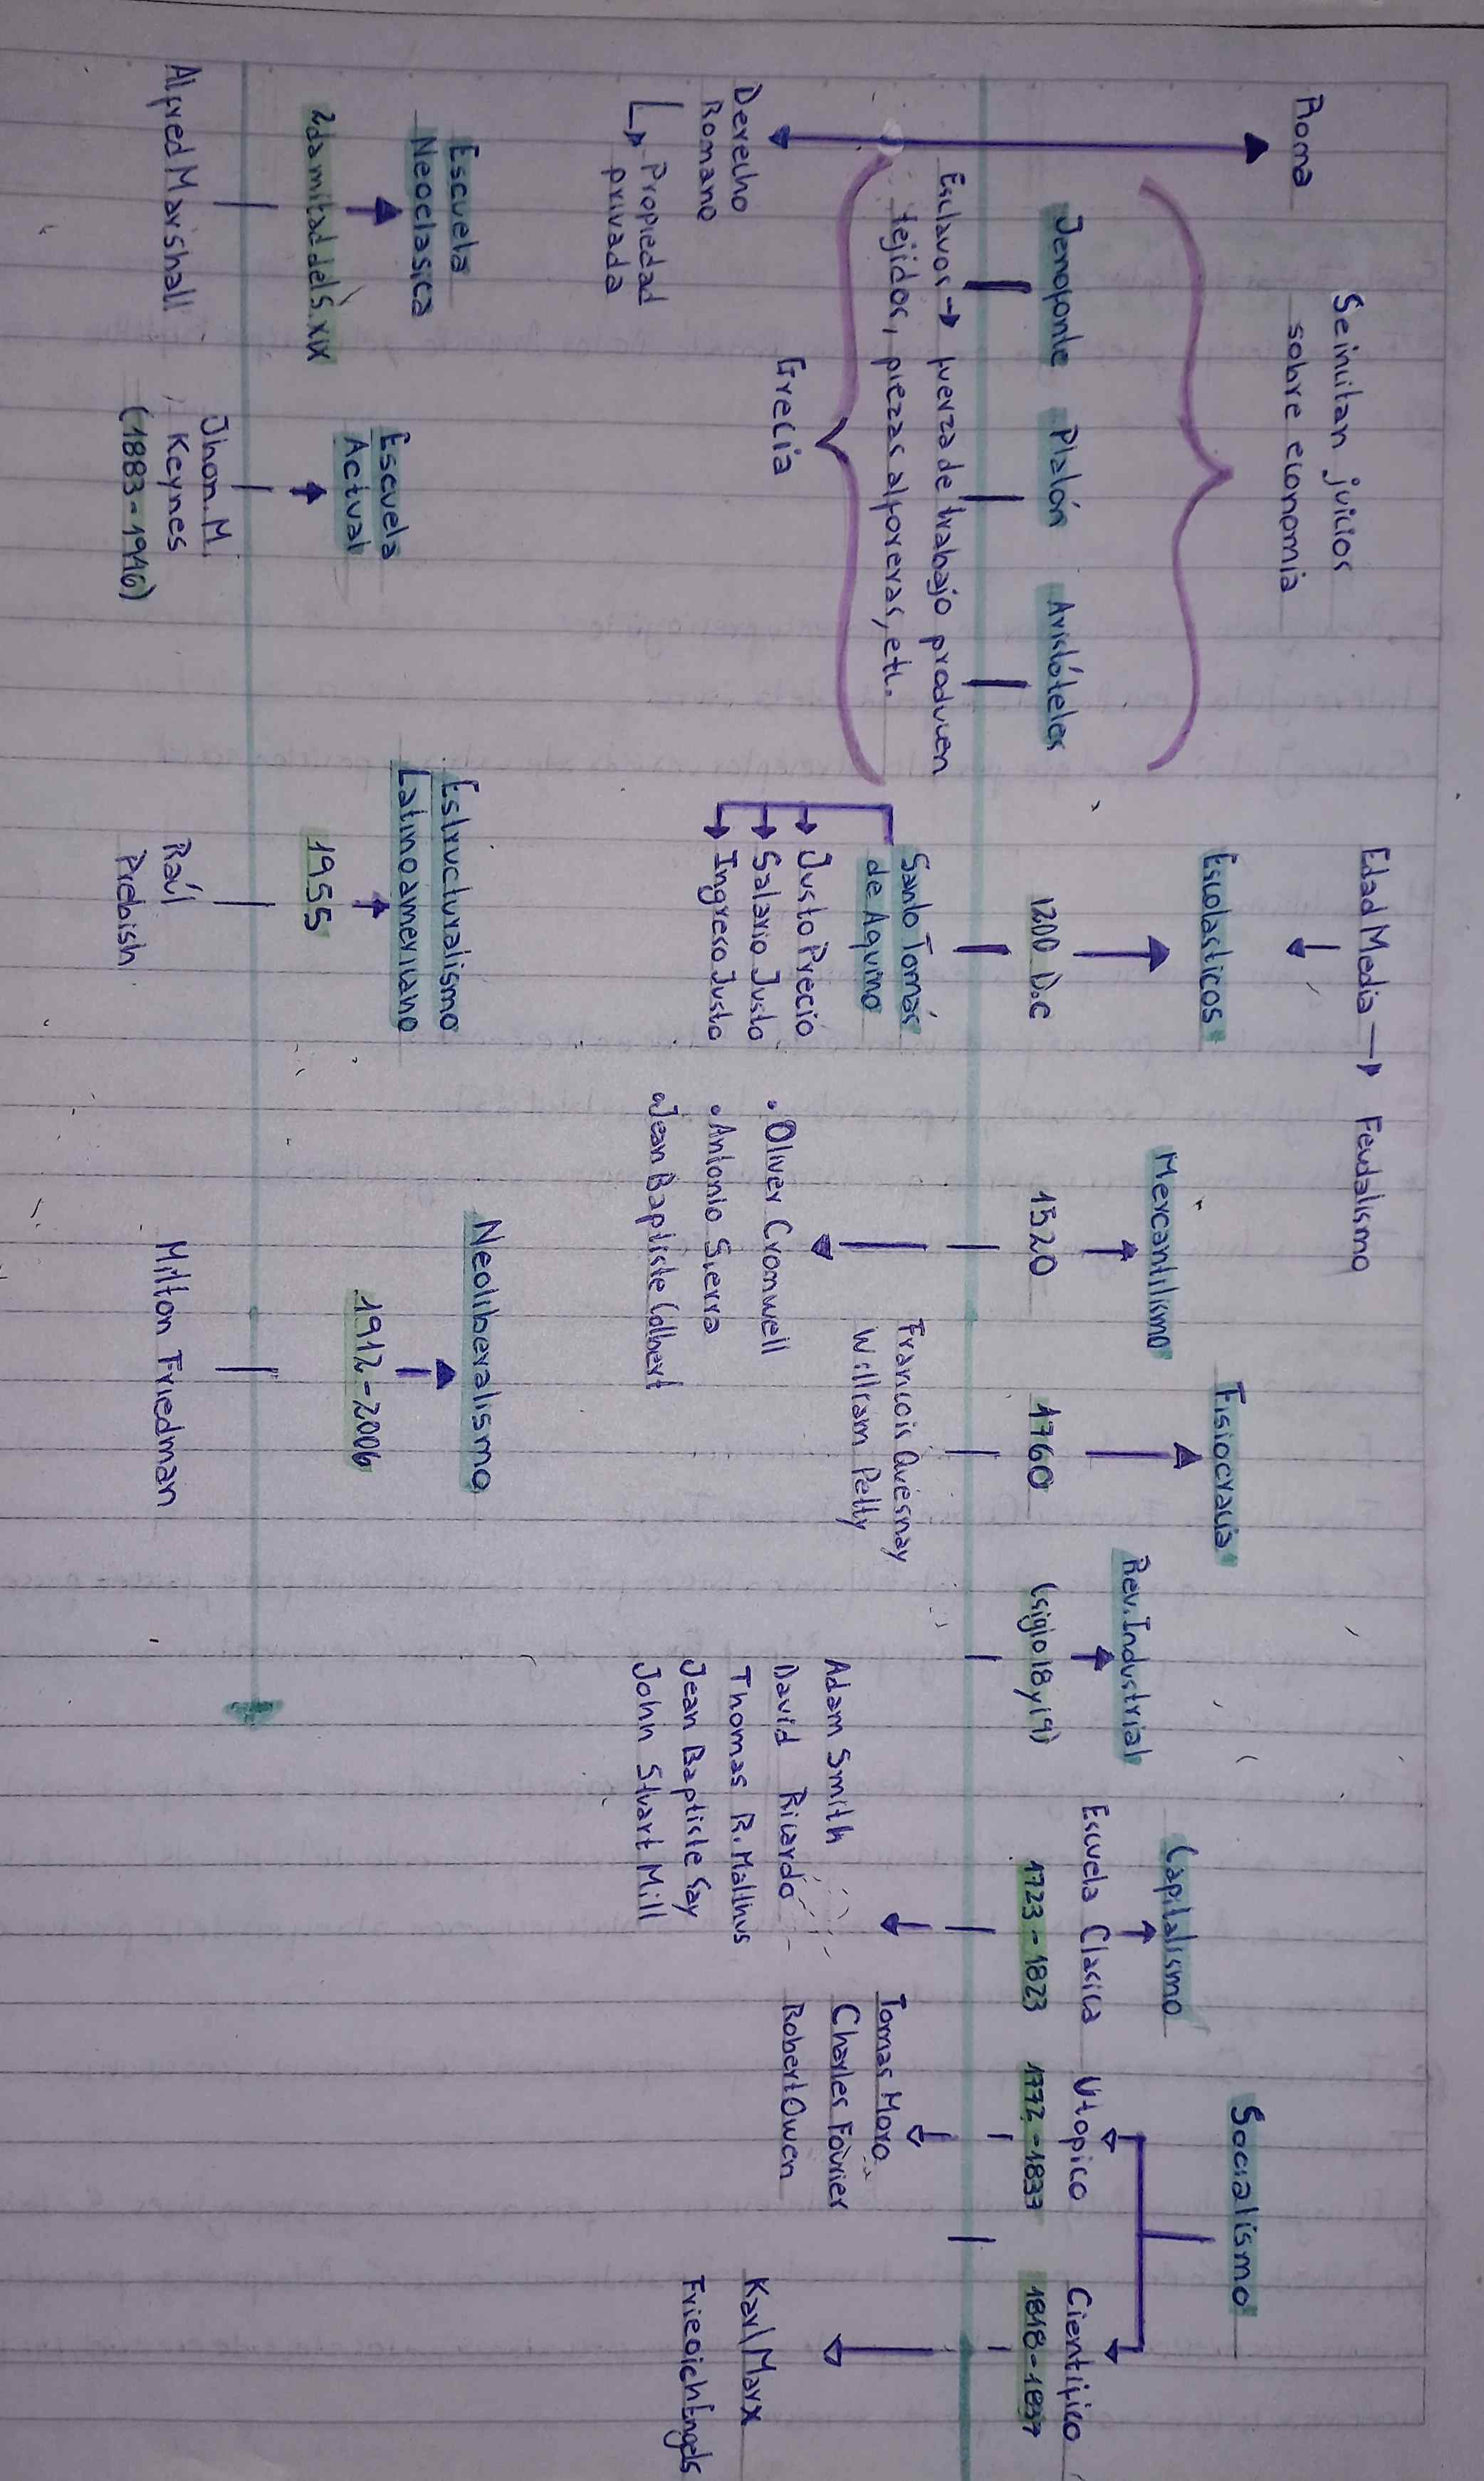 Roma
Se inician juicios
sobre economia
Jenofonte
Platón
Aristóteles
Esclavos → fuerza de trabajo producen
tejidos, piezas alforeras, etc.
Grecia
Derecho
Romano
Propiedad
privada
Edad Media → Feudalismo
Escolasticos
1200 D.C
Santo Tomás
de Aquino
Justo Precio
Salario Justo
Ingreso Justo
Mercantilismo
1520
• Oliver Cromwell
• Antonio Sierra
• Jean Baptiste Colbert
Fisiocracia
1760
Francois Quesnay
William Petty
Rev. Industrial
(siglo 18 y 19)
Capitalismo
Escuela Clasica
1723 - 1823
Adam Smith
David Ricardo
Thomas R. Malthus
Jean Baptiste Say
John Stuart Mill
Socialismo
Utopico
1772 - 1837
Tomas Moro
Charles Fourier
Robert Owen
Cientifico
1818 - 1837
Karl Marx
Friedich Engels
Escuela
Neoclasica
2da mitad del S. XIX
Alfred Marshall
Escuela
Actual
Jhon. M.
Keynes
(1883 - 1946)
Estructuralismo
Latinoamericano
1955
Raúl
Prebish
Neoliberalismo
1912 - 2006
Milton Friedman